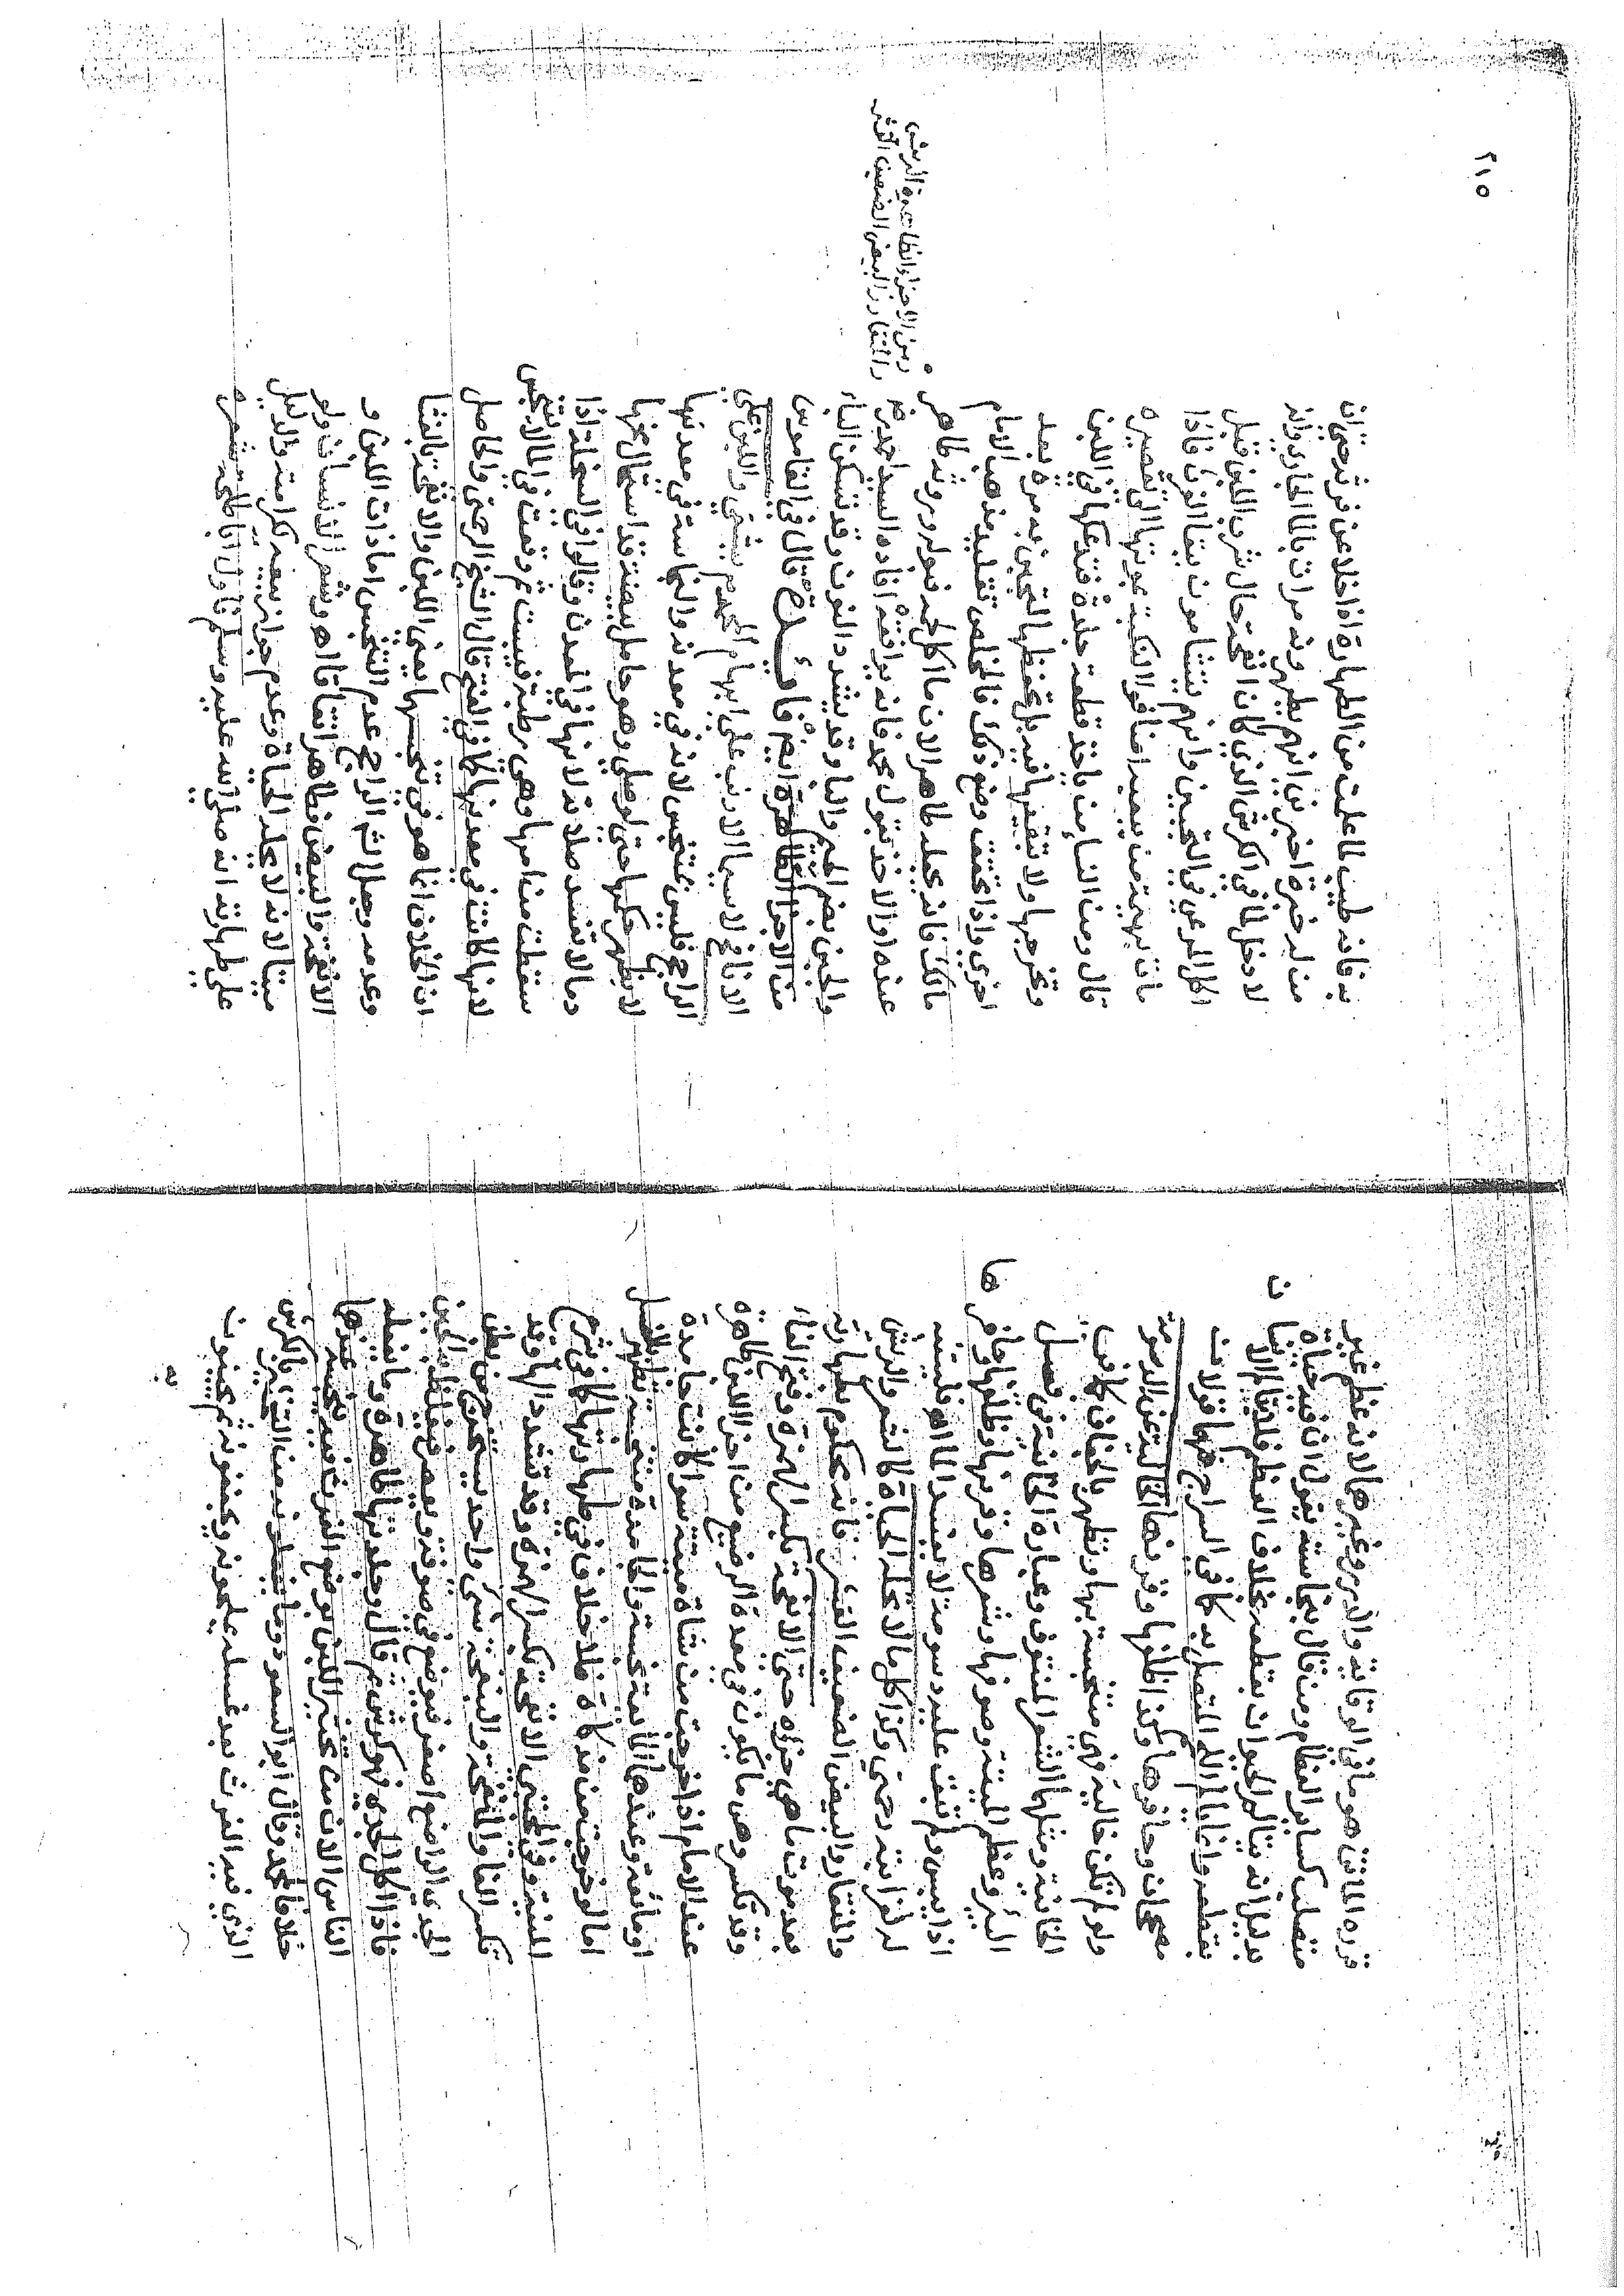 قرره الماتن هو ما في الوقاية والدرر وغيرهما لانه عظم غير
متصلب كساير العظام ومن قال بنجاسته يقول ان فيه حياة
بدليل انه يتالم الحيوان بقطعه بخلاف العظم فلا يتالم الا
بقطعه وانما اللبد المتصل به كما في السراج فيها قولان
مصححان وحافرها وقرنها الخالية عن الدسومة
ولو لم تكن خالية فهي متنجسة بها وتطهر بالجفاف
الخانية ومثلها الشعر المنتوف وعبارة الخانية في فصل
البير وعظم الميتة وصوفها وشعرها وقرنها وظلفها وحافرها
اذا يبس ولم تبق عليه دسومة لا يفسد الماء
وكذا كل ما لا تحله الحياة كالشعر والريش
والمنقار والبيض الضعيف القشر فانه محكوم بطهارته
بعد موت ما هي جزؤه حتى الانفحة بكسر الهمزة وفتح الفاء
وقد تكسر وهي ما يكون في معدة الرضيع من اجزا اللبن طاهرة
عند الامام اذا خرجت من شاة ميتة سوا كانت جامدة
او مايعة وعندهما المايعة نجسة والجامدة متنجسة تطهر بالغسل
اما لو خرجت من مذكاة فلا خلاف في طهارتها كما في شرح
المنية وفي المجتبى الانفحة بكسر الهمزة وقد تشدد الحا وقد
تكسر الفا والمنفحة والبنفحة شي واحد يستخرج من بطن
الجدي الراضع اصفر فيوضع في صوفة ويعصر فيغلظ كالجبن
فاذا اكل الجدي فهو كرش ثم قال وجلدتها طاهرة وما يفعله
الناس الان من تخثير اللبن بوضع الفرث فيه ينجسه عندها
خلافا لمحمد وقال ابو السعود وما يفعلونه من التخثير بالكرش
الذي فيه الفرث بعد غسله يملحونه ويجففونه ثم يجبنون
به
٢١٥
به فانه طيب لما علمت من الطهارة اذا خلا عن فرث حتى ان
من له خبرة اخبرني انهم يطهرونه مرات بالماء الجاري وانه
لا دخل لما في الكرش الذي كان انفحة حال شرب اللبن قبل
اكل المرعى في التجبين وانهم يتشامون ببقاء الفرث فاذا
مات بهيمة من بعيد اضافوا النكبة بموتها الى تقصيره
قال ومن الناس من ياخذ قطعة جلدة فتدعكها في اللبن
وتخرجها ولا تبقيها فيه بل تحفظها لتجبن به مرة بعد
اخرى واذا تحقق وضع ذلك فالمخلص تقليد مذهب الامام
مالك فانه بجعله طاهر لان ما اكل لحمه فبوله وروثه طاهر
عنده او الاخذ بقول محمد فانه يوافقه افاده السيد احمد
والجبن بضم الجيم والباء وقد تشدد النون وقد تسكن الباء
من الاجزا الطاهرة ايضا فايدة قال في القاموس
الانافح لا سيما الارنب
الراجح فليس بمتنجس لانه في معدنه والنجاسة في معدنها
لا يظهر حكمها حتى لو صلى وهو حامل بيضة قد استحال محها
دما لا تفسد صلاته لانها في المعدن وقالوا في السخلة اذا
سقطت من امها وهي رطبة فيبست ثم وقعت في الماء لا تنجس
لانها كانت في معدنها كذا في الفتح قال الشيخ الرحمتي والحاصل
ان الخلاف انما هو في تنجسها يعني اللبن والانفحة بالغشاء
وعدمه وجعل الشارح الراجح عدم التنجس اما ذات اللبن و
الانفحة والبيض فطاهر اتفاقا اه وشعر الانسان ولو
ميتا لانه لا يحله الحياة وعدم جواز بيعه لكرامته والدليل
على طهارته انه صلى الله عليه وسلم ناول ابا طلحة شعره
من الاجزا الطاهرة الريش
والمنقار والبيض الضعيف القشر